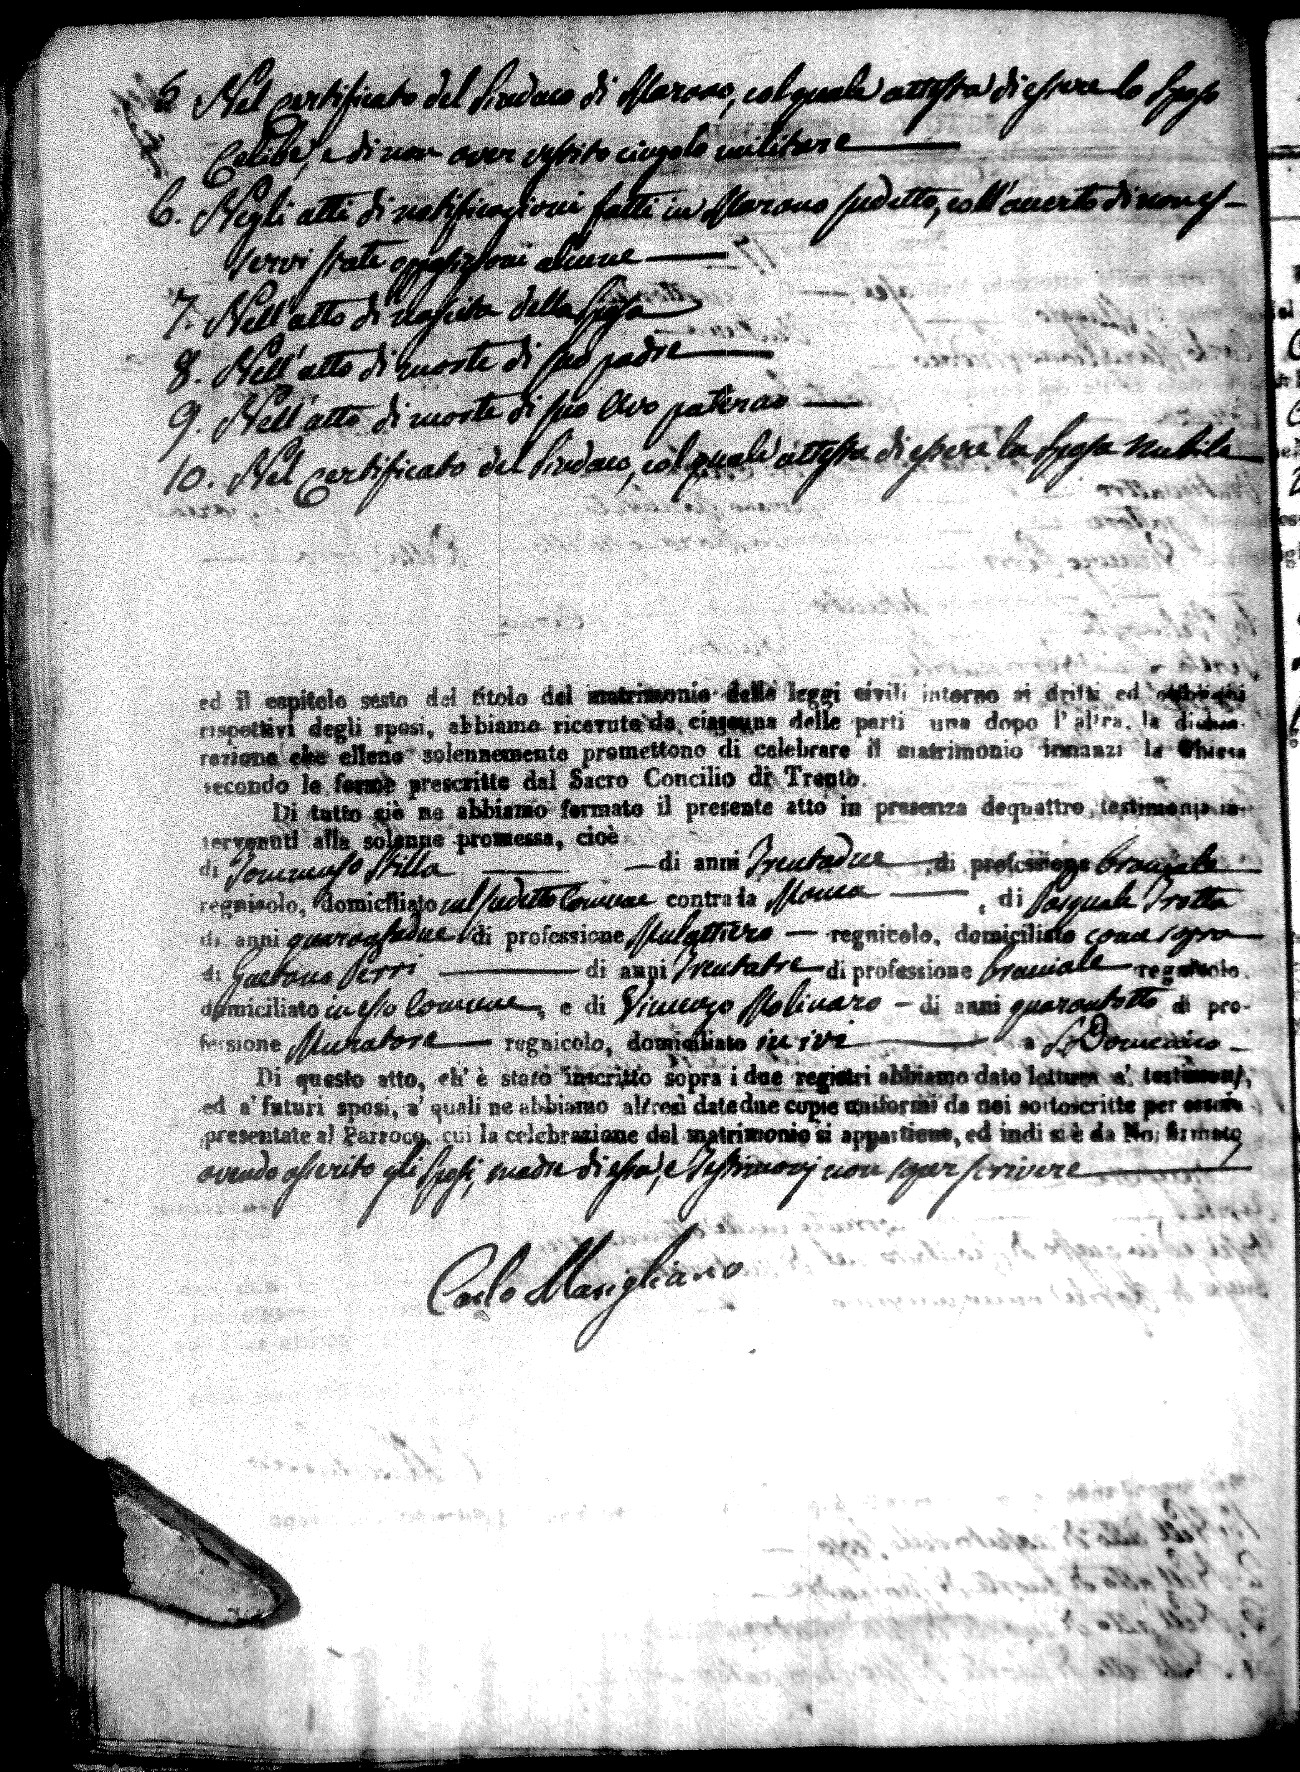 5 Nel Certificato del Sindaco di Marano, col quale attesta di essere lo Sposo
Celibe, e di non aver vestito cingolo militare
6. Negli atti di notificazioni fatti in Marano sudetto, coll'averto di non es-
servi state opposizioni alcune
7. Nell'atto di nascita della Sposa
8. Nell'atto di morte di suo padre
9. Nell'atto di morte di suo Avo paterno
10. Nel Certificato del Sindaco, col quale attesta di essere la Sposa nubile
ed il capitolo sesto del titolo del matrimonio delle leggi civili intorno ai dritti ed obblighi
rispettivi degli sposi, abbiamo ricevuto da ciascuna delle parti una dopo l'altra, la dichia-
razione che elleno solennemente promettono di celebrare il matrimonio innanzi la Chiesa
secondo le forme prescritte dal Sacro Concilio di Trento.
Di tutto ciò ne abbiamo formato il presente atto in presenza de quattro testimonj in-
tervenuti alla solenne promessa, cioè
di Tommaso Stilla di anni Trentadue di professione bracciale
regnicolo, domiciliato nel sudetto Comune contrada , di Pasquale Trotta
di anni quarantadue di professione Mulattiero regnicolo, domiciliato come sopra
di Gaetano Perri di anni Trentatre di professione bracciale regnicolo,
domiciliato in esso Comune, e di Vincenzo Molinaro di anni quarantotto di pro-
fessione Muratore regnicolo, domiciliato in ivi a S. Domenico
Di questo atto, ch' è stato inscritto sopra i due registri abbiamo dato lettura a' testimonj,
ed a' futuri sposi, a' quali ne abbiamo altresì date due copie uniformi da noi sottoscritte per essere
presentate al Parroco, cui la celebrazione del matrimonio si appartiene, ed indi si è da Noi firmato
avendo asserito gli Sposi, madre di essa, e Testimonj non saper scrivere
Carlo Marigliano